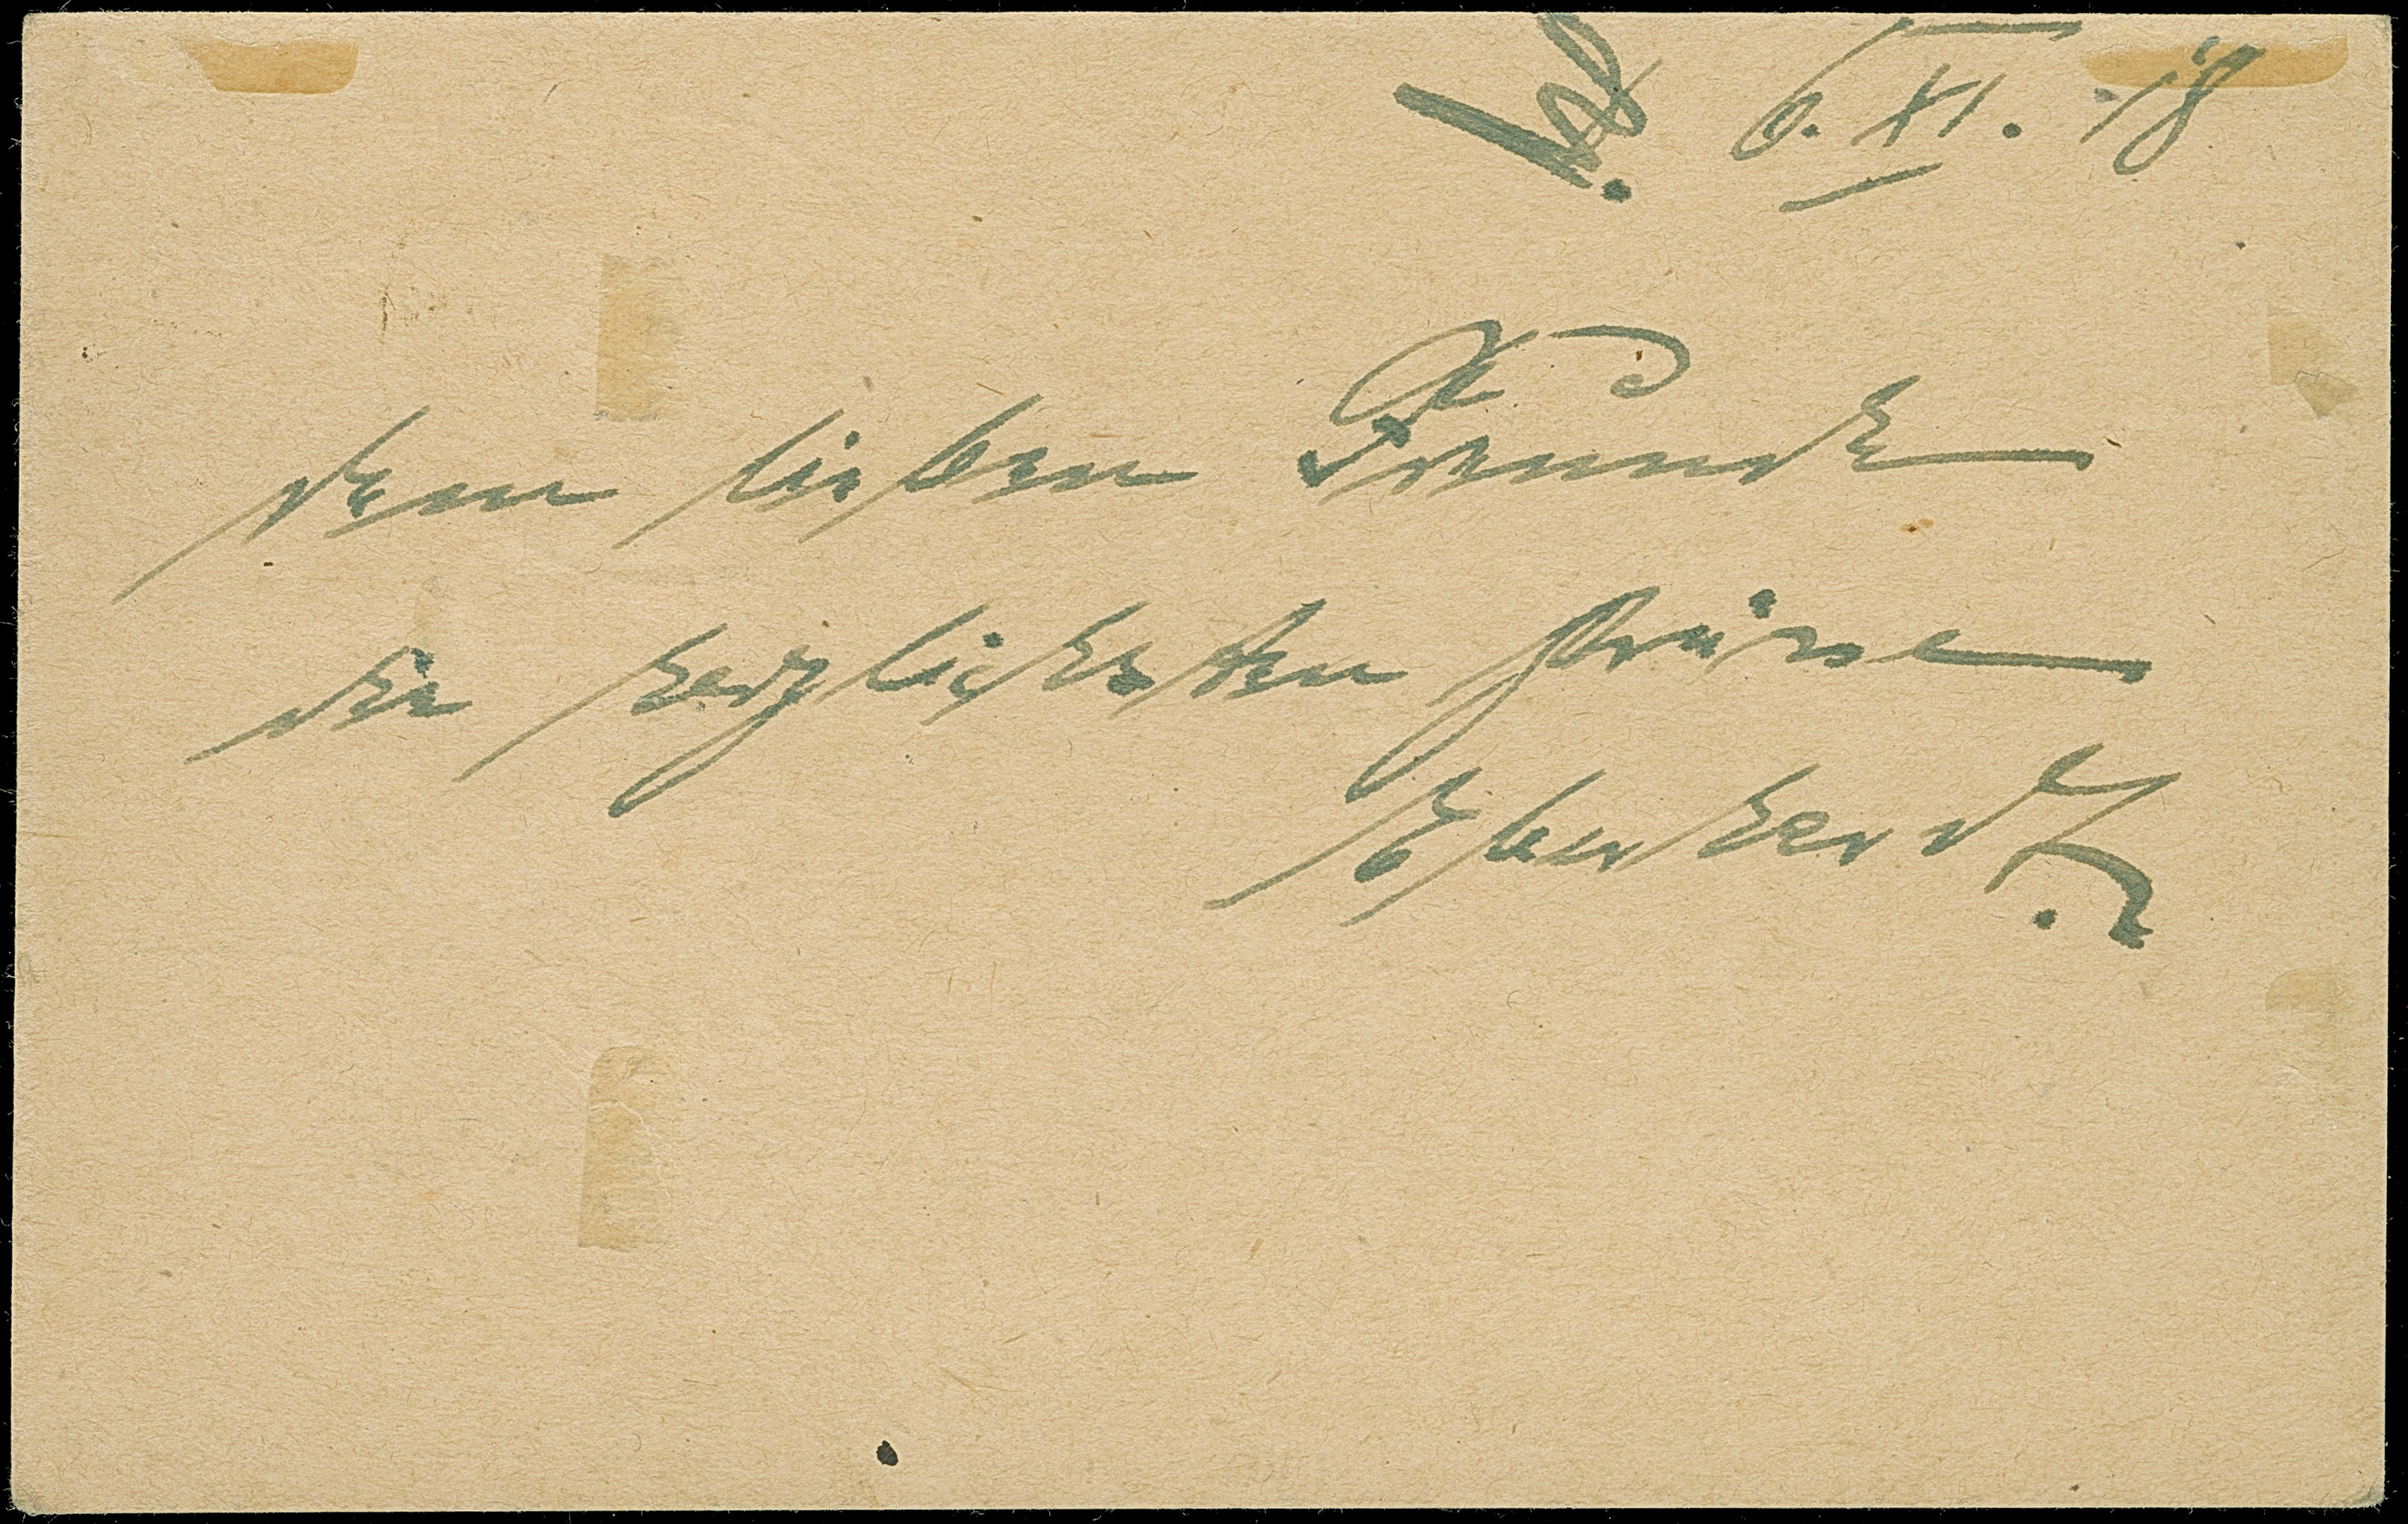 6. XI. 18
dem lieben Freunde
die herzlichsten Grüsse
Eberhard